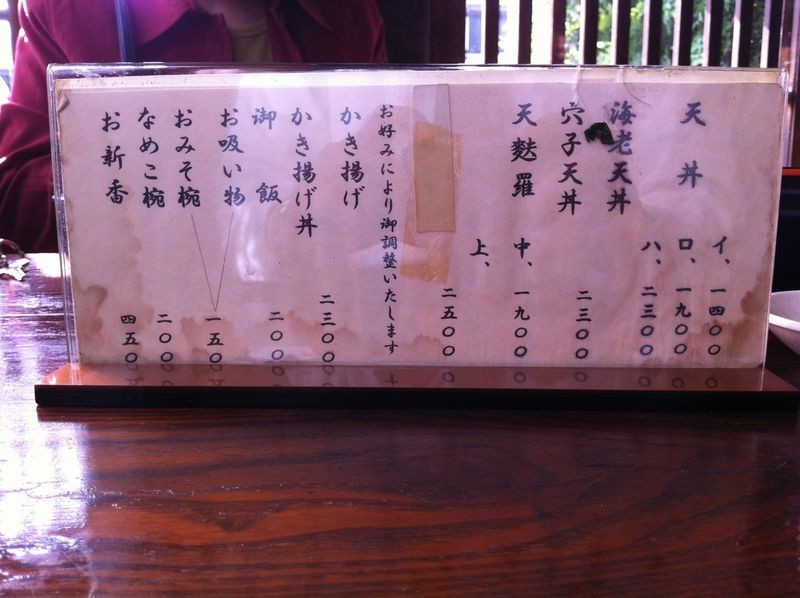 天丼
イ、一四〇〇
ロ、一九〇〇
ハ、二三〇〇
海老天丼
穴子天丼 二三〇〇
天麩羅 中、一九〇〇
上、二五〇〇
お好みにより御調整いたします
かき揚げ
かき揚げ丼 二三〇〇
御飯 二〇〇
お吸い物
おみそ椀 一五〇
なめこ椀 二〇〇
お新香 四五〇